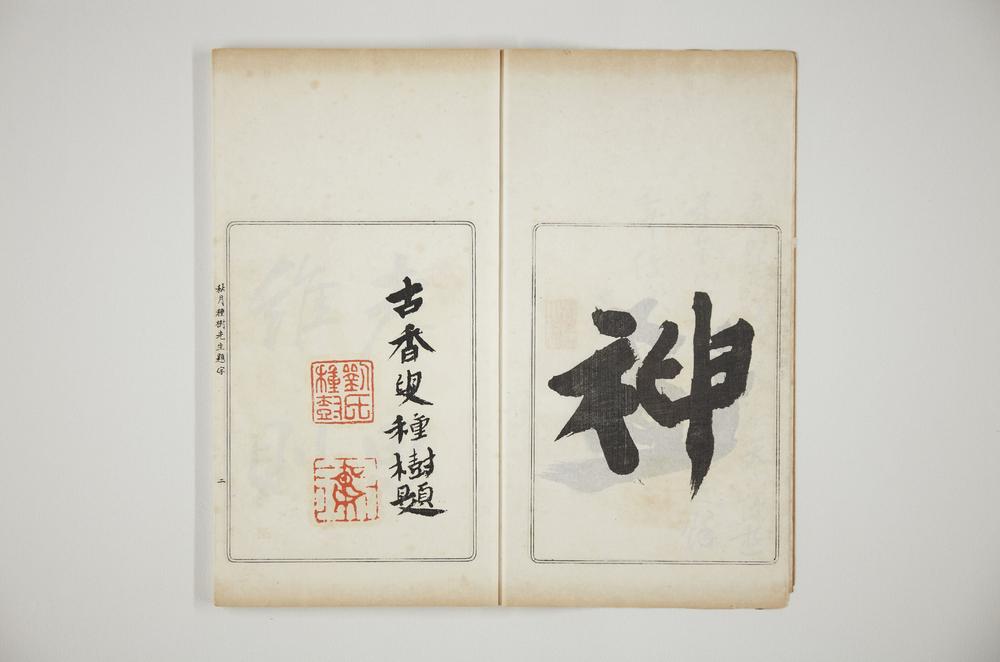 神
古香叟種樹題
劉氏
種樹
秋月種樹先生題字
二